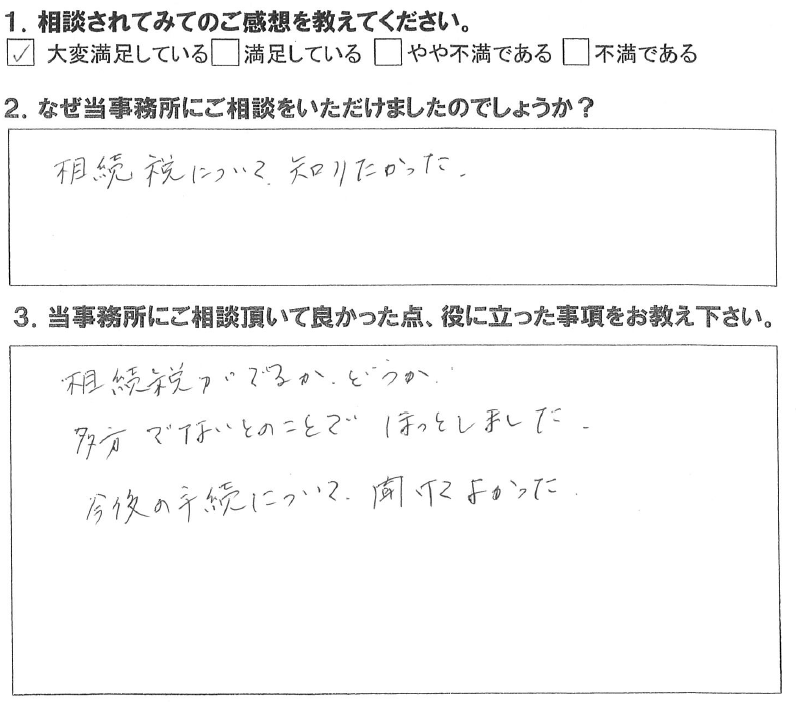 1. 相談されてみてのご感想を教えてください。
☑ 大変満足している □ 満足している □ やや不満である □ 不満である
2. なぜ当事務所にご相談をいただけましたのでしょうか？
相続税について、知りたかった。
3. 当事務所にご相談頂いて良かった点、役に立った事項をお教え下さい。
相続税がでるか、どうか、
多方でないとのことでほっとしました。
今後の手続について、聞けてよかった。